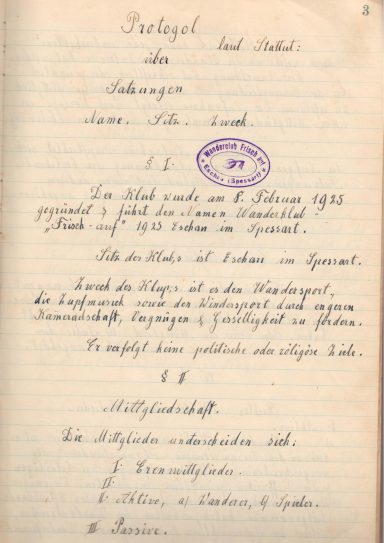 3
Protogol
laut Stattut:
über
Satzungen
Name. Sitz. Zweck.
Wanderclub Frisch auf
Eschau (Spessart)
§ I.
Der Klub wurde am 8. Februar 1925
gegründet & führt den Namen Wanderklub
„Frisch-auf" 1925 Eschau im Spessart.
Sitz des Klub,s ist Eschau im Spessart.
Zweck des Klup,s ist es den Wandersport,
die Zupfmusick sowie der Windersport durch engeren
Kameradschaft, Vergnügen & Gesselligkeit zu fördern.
Er verfolgt keine politische oder religöse Ziele.
§ II
Mittgliedschaft.
Die Mittglieder underscheiden sich:
I. Erenmittglieder.
II.
II. Aktive, a) Wanderer, b) Spieler.
III Passive.